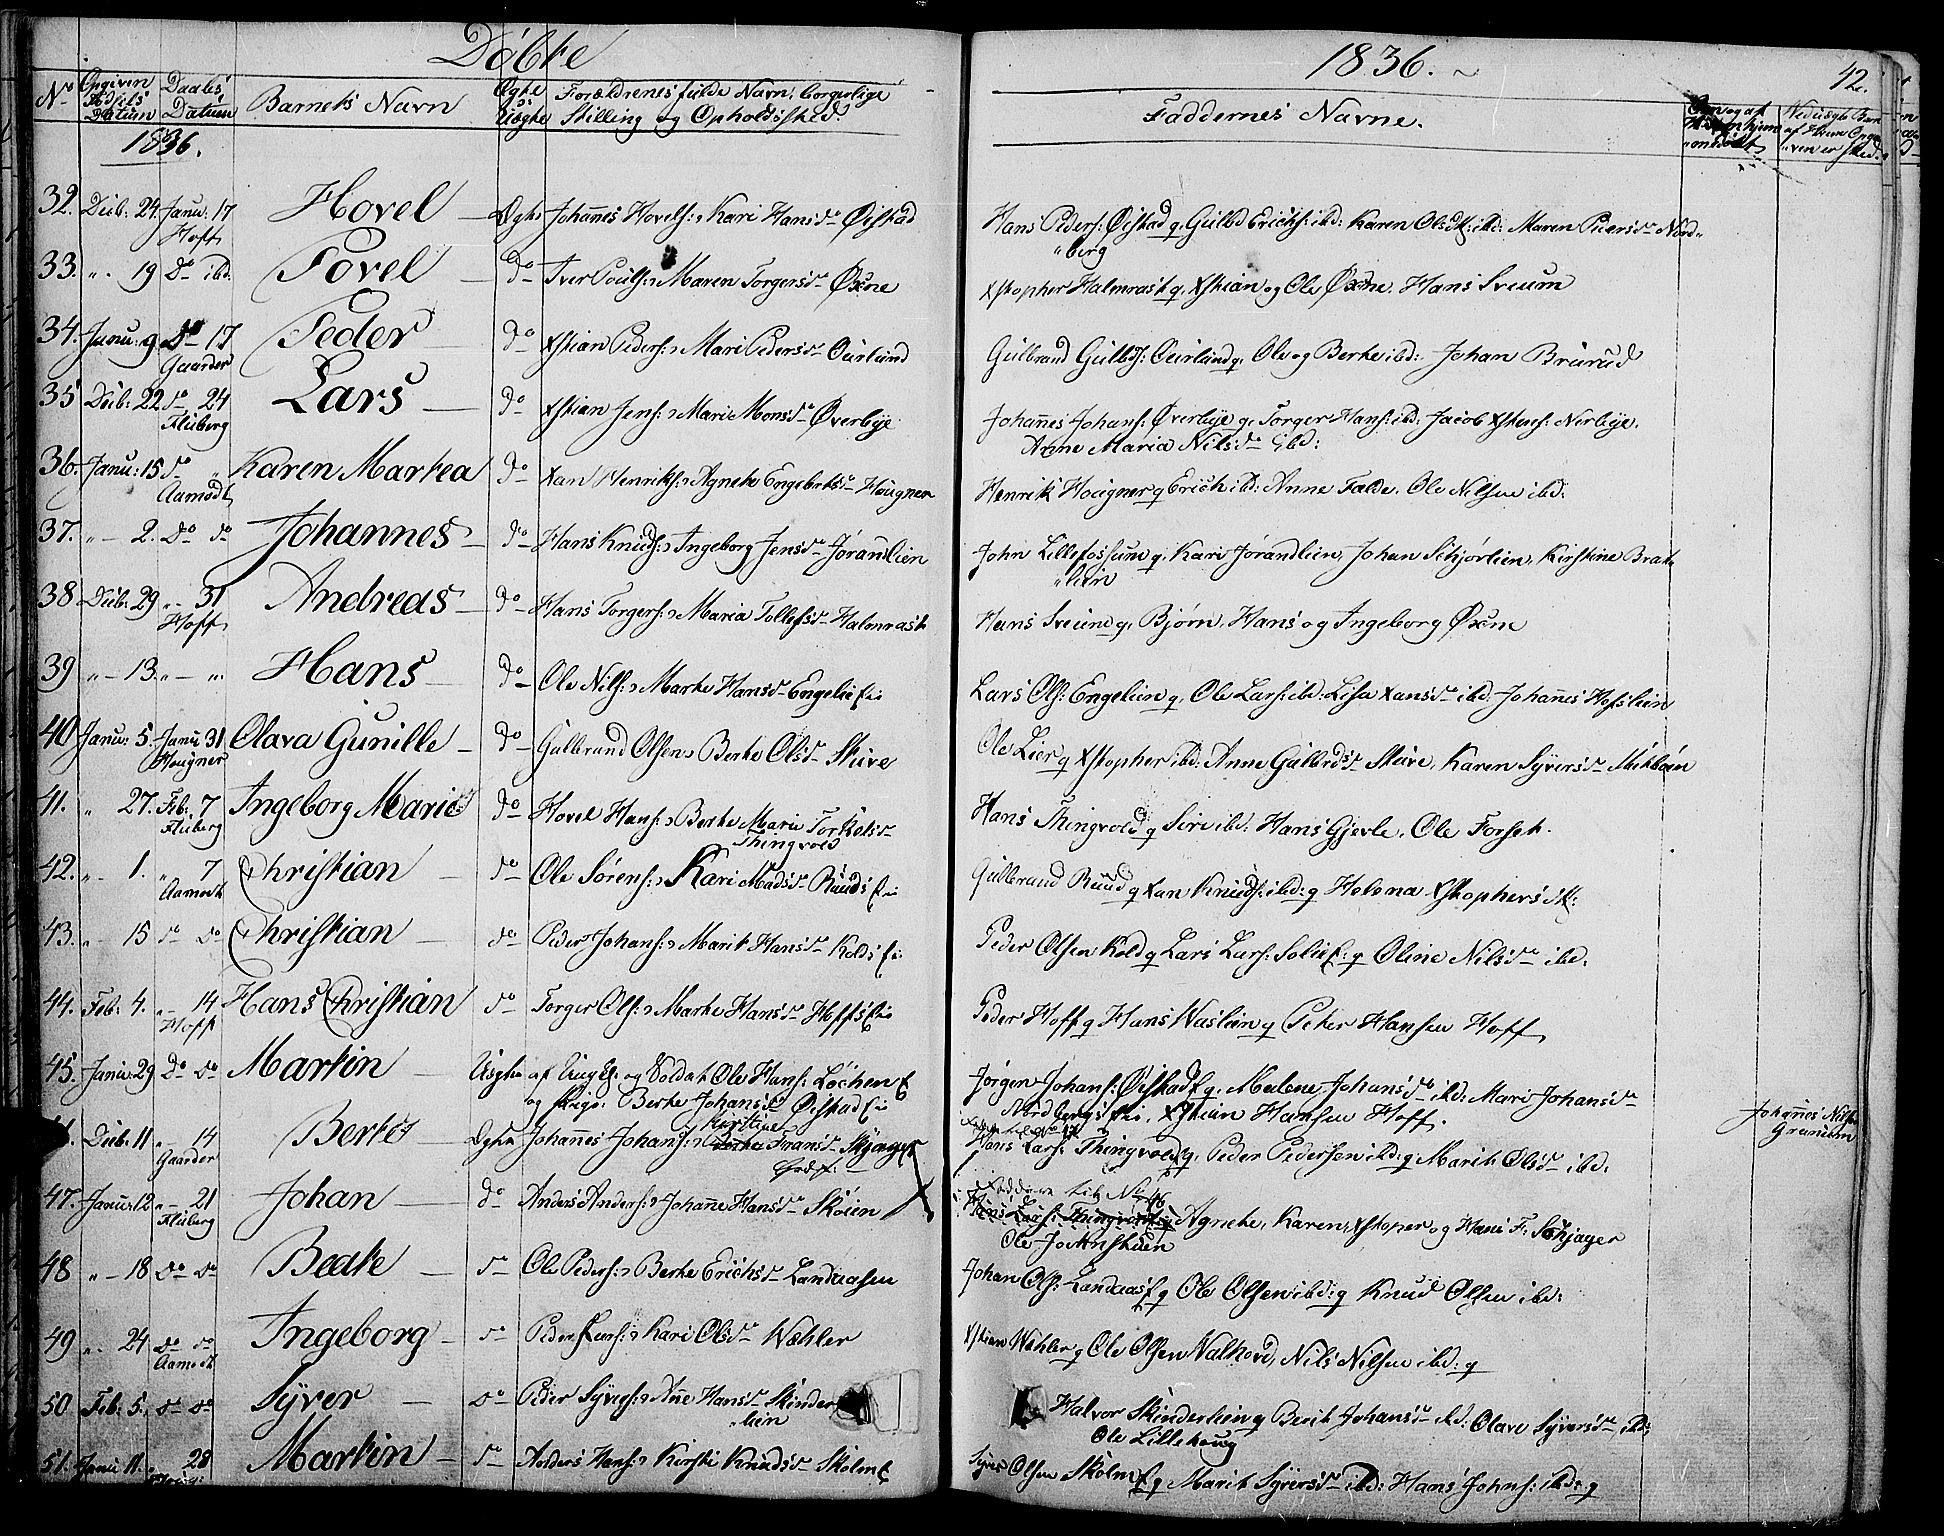 Døbte
1836.
42.
No
Opgiven Fødsels Datum
Daabs Datum
Barnets Navn
Ægte og Uægte
Forældrenes fulde Navn, borgerlige Stilling og Opholdssted
Faddernes Navne.
1836.
32. Decb: 24. Janu: 17 Hoff Hovel Ægte Johannes Hovels: & Kari Hansd. Øistad
Hans Peders: Øistad q, Gulbd Erichs: ibd: Karen Olsdt: ibd: Maren Peersd. Nord-
berg
33. " 19 Do ibd. Povel do Iver Pouls: & Maren Torgersd. Øxne
Xstopher Halmrast q, Xstian og Ole Øxne, Hans Sveum
34. Janu: 9. Do 17 Gaarder Peder do Xstian Peders: & Mari Pedersd. Ourlund
Gulbrand Gulbds: Ourlund q, Ole og Berte ibd: Johan Bruruud
35 Decb: 22 do 24 Fluberg Lars do Xstian Jens: & Mari Monsd. Øverbye
Johannes Johans: Øverbye q, Torger Hans: ibd: Jacob Xstens: Nerbye,
Anne Maria Nilsd. ibd:
36. Janu: 15 do " Aamodt Karen Martea do Xan Henriks: & Agnete Engebretsd. Hougner
Henrik Hougner q Erich ibd: Anne Falde, Ole Nilsen ibd:
37. " 2. Do do Johannes do Hans Knuds: & Ingeborg Jensd. Jørandlien
John Lillefossum q, Kari Jørandlien, Johan Schjørlien, Kirstine Brat-
lien
38 Decb: 29 " 31 Hoff Andreas do Hans Torgers: & Maria Tollefsd. Halmrast
Hans Sveum q, Bjørn, Hans og Ingeborg Øxne
39 " 13. " " Hans do Ole Nils: & Marte Hansd. Engelie Ei:
Lars Ols: Engelien q, Ole Lars: ibd: Lisa Xansd. ibd: Johannes Hofslien
40 Janu: 5. Janu 31 Hougner Olava Gunille do Gulbrand Olsen & Berte Olsd. Skive
Ole Lier q Xstopher ibd: Anne Gulbrdsd. Skive, Karen Syversd.
41. " 27. Feb: 7 Fluberg Ingeborg Marie do Hovel Hans: & Berte Marie Torkelsd.
Thingvold
Hans Thingvold q Siri ibd: Hans Gjerle, Ole Forset.
42. " 1. " 7 Aamodt Christian do Ole Sørens: & Kari Madsd. Ruuds Ei:
Gulbrand Ruud q Xan Knuds: ibd: q Helena Xstophersdt:
43. " 15 do do Christian do Peder Johans: & Marit Hansd. Kolds Ei:
Peder Olsen Kold q Lars Lars: Solie E: q Oline Nilsd. ibd:
44. Feb: 4. " 14 Hoff Hans Christian do Torger Ols: & Marte Hansd. Hoffs Ei:
Peder Hoff q Hans Waslien q Peter Hansen Hoff
45. Janu: 29 Do do Martin Uægte af Ung K: og Soldat Ole Hans: Løchen E
og Pige: Berte Johansd. Øistad Ei:
Jørgen Johans: Øistad E q, Malene Johansd. ibd: Mari Johansd.
Nordbergs Ei, Xstian Hansen Hoff.
Johannes Nils
Granum
Decb: 11 " 14 Gaarder Berte Ægte Johannes Johans: & Kirstine Fransd. Skjager
Hans Lars: Thingvold q, Peder Pedersen ibd: q Marit Olsd. ibd:
47. Janu: 12 " 21 Fluberg Johan do Anders Anders: & Johanne Hansd. Skøien
Faddere til No 46
Hans Lars: Thingvold q Agnete, Karen, Xstoper og Hans F: Schjager
48 " 18 do do Beate do Ole Peders: & Berte Erichsd. Landaasen
Johan Ols: Landaas E q Ole Olsen ibd: q Knud Olsen ibd:
49 " 24 do do Aamodt Ingeborg do Peder Lars: & Kari Olsd. Wæhler
Xstian Wæhler q Ole Olsen Valhovd, Nils Nilsen ibd: q
50 Feb: 5. do do Syver do Peder Syvers: & Ane Hansd. Skinder-
lien
Halvor Skinderlien q Berit Johansd. ibd: Olave Syversd. ibd:
Ole Lillehoug
51. Janu 11. " 28 Martin do Anders Hans: & Kirsti Knudsd. Skolm E
Syver Olsen Skolm E q Marit Syversd. ibd: Hans Johns: ibd: q